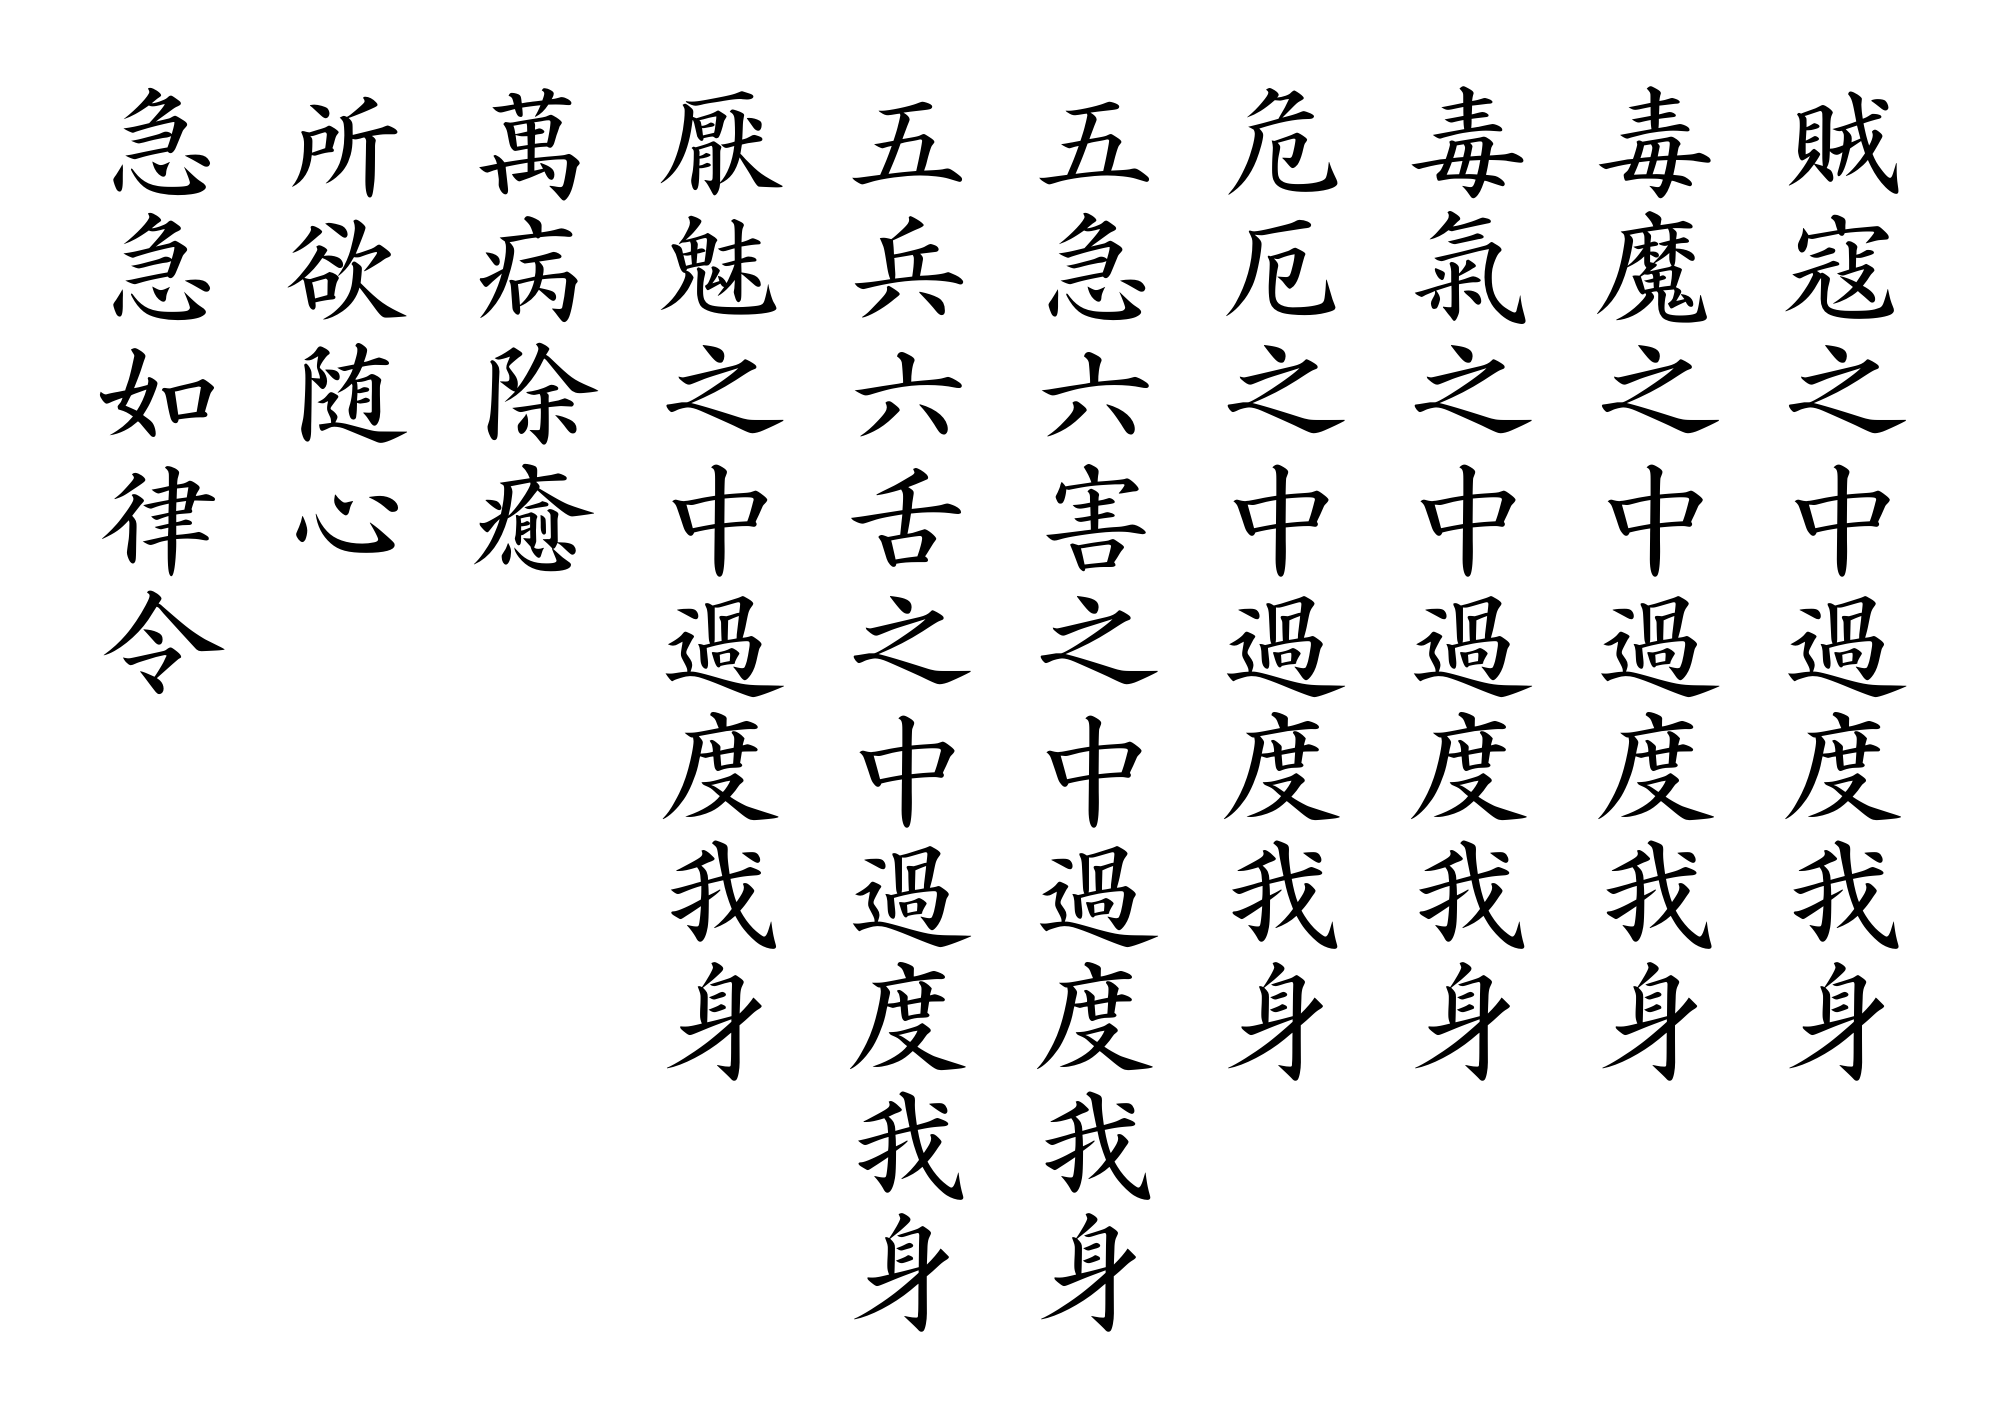 賊寇之中過度我身
毒魔之中過度我身
毒氣之中過度我身
危厄之中過度我身
五急六害之中過度我身
五兵六舌之中過度我身
厭魅之中過度我身
萬病除癒
所欲随心
急急如律令